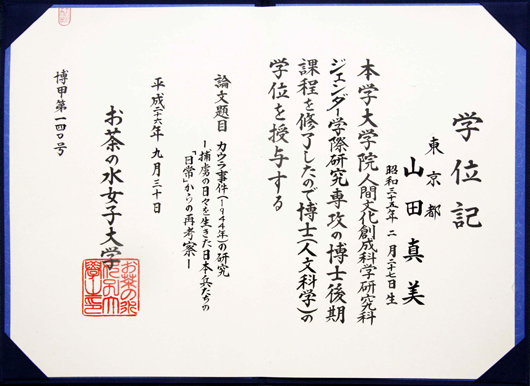 学位記
東京都
山田真美
昭和三十五年 二月二十七日生
本学大学院人間文化創成科学研究科
ジェンダー学際研究専攻の博士後期
課程を修了したので博士(人文科学)の
学位を授与する
論文題目 カウラ事件(1944年)の研究
―捕虜の日々を生きた日本兵たちの
「日常」からの再考察―
平成二十六年 九月三十日
お茶の水女子大学
博甲第一四〇号